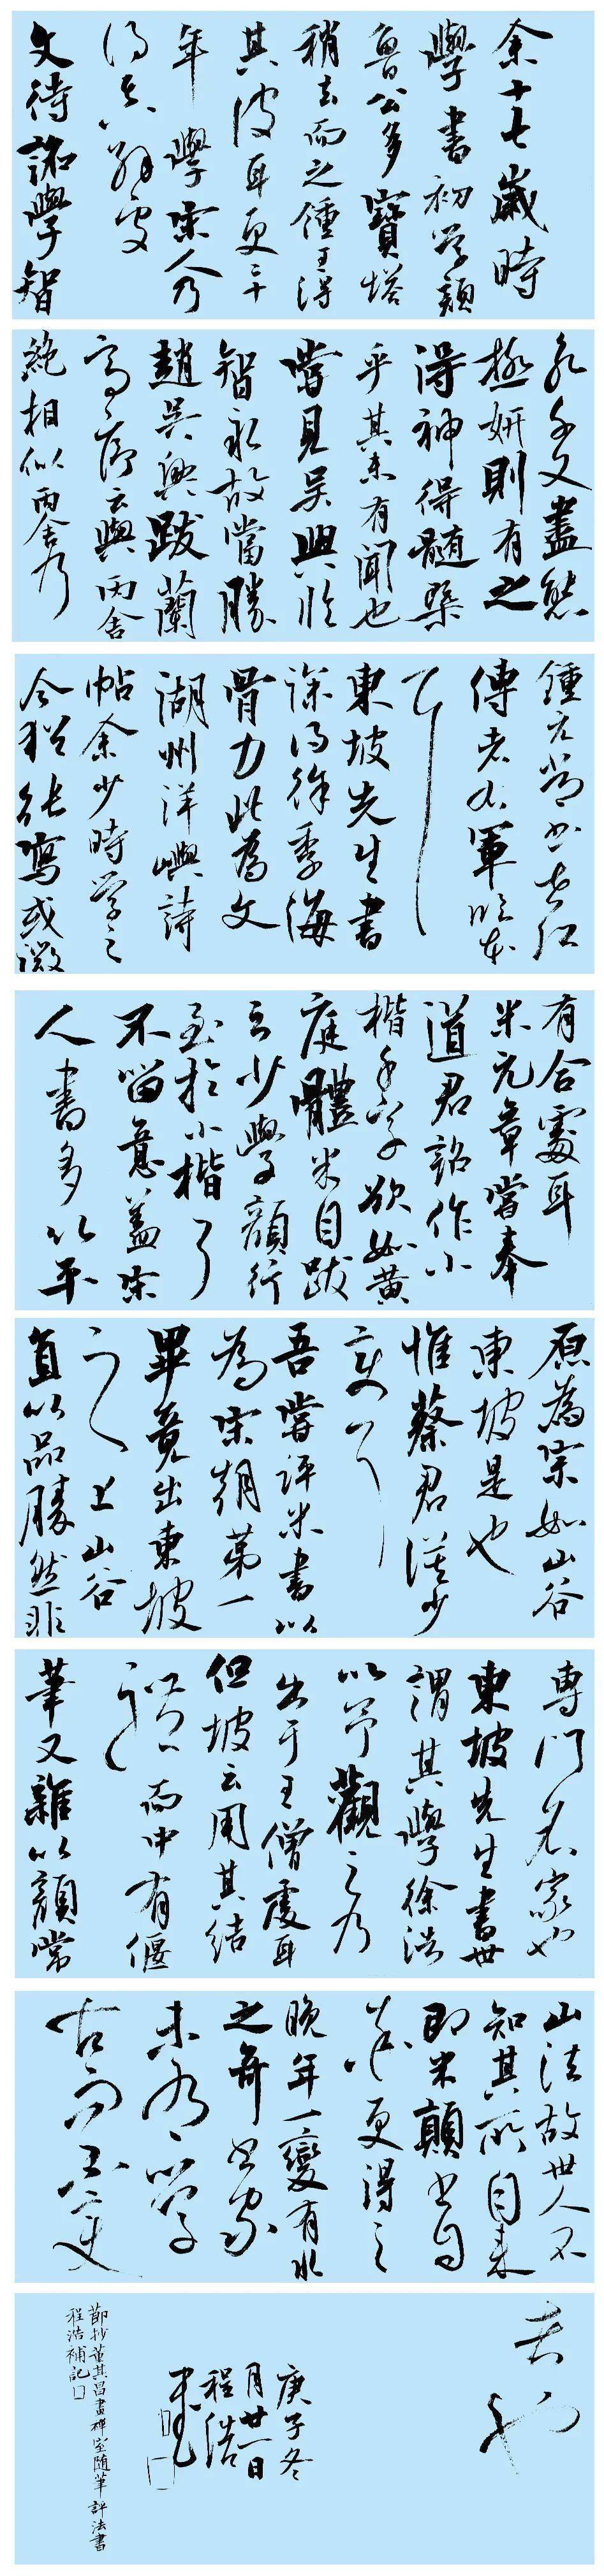 余十七歲時
學書初學顏
魯公多寶塔
稍去而之鍾王得
其皮耳更三十
年學宋人乃
得其解處
文待詔學智
永千文盡態
極妍則有之
得神得髓槩
乎其未有聞也
嘗見吳興臨
智永故當勝
趙吳興跋蘭
亭序云與丙舍
絕相似丙舍乃
鍾元常書世江
傳者右軍臨本
耳
東坡先生書
深得徐季海
骨力此為文
湖州洋嶼詩
帖余少時學之
今猶能寫或微
有合處耳
米元章嘗奉
道君詔作小
楷千字欲如黃
庭體米自跋
云少學顏行
至於小楷了
不留意蓋宋
人書多以平
原為宗如山谷
東坡是也
惟蔡君謨少
變耳
吾嘗評米書以
為宋朝第一
畢竟出東坡
之上山谷
直以品勝然非
專門名家也
東坡先生書世
謂其學徐浩
以予觀之乃
出于王僧虔耳
但坡云用其結
體而中有偃
筆又雜以顏常
山法故世人不
知其所自來
即米顛書自
率更得之
晚年一變有冰
之奇書家
未有學
古而不變
者也
庚子冬
月廿一日
程浩
書
節抄董其昌畫禪室隨筆評法書
程浩補記